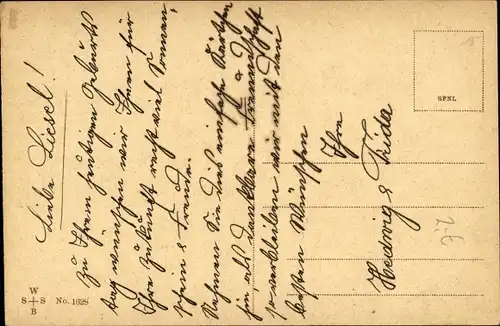 Liebe Liesel!
Zu Ihrem heutigen Geburts
tag wünschen wir Ihnen für
Ihre Zukunft recht viel Sonnen,
schein & Freude.
Nehmen Sie dies einfache Kärtchen
hin, als dankbare Freundschaft
so verbleiben wir mit den
besten Wünschen
Ihre
Hedwig & Frida
SPNL
W
S + S
B
No. 1628